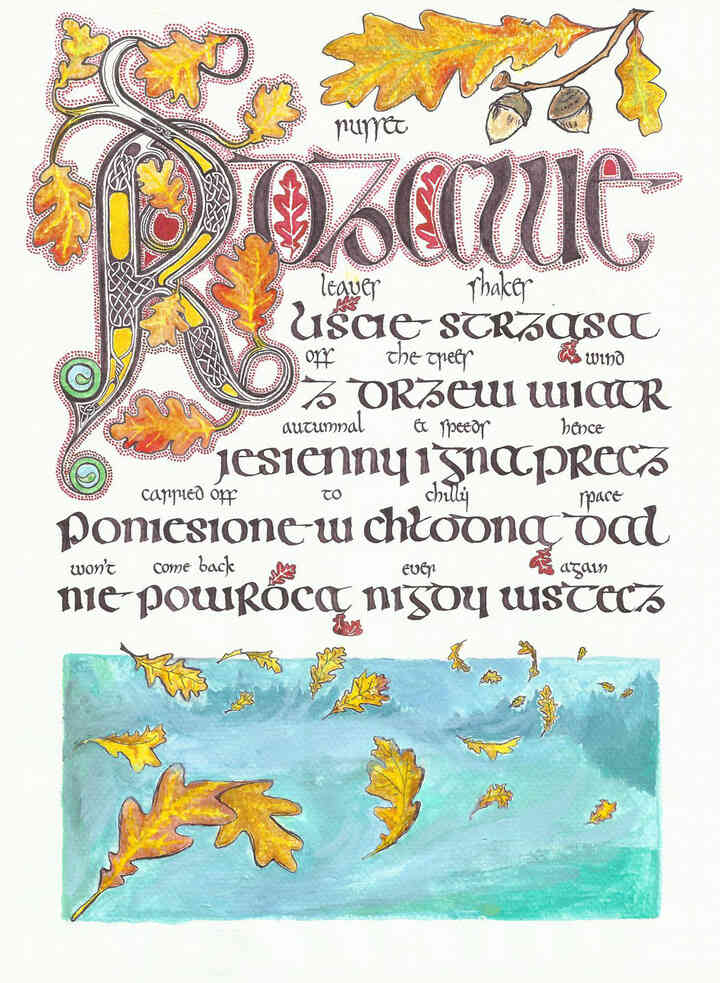 russet
Rdzawe
leaves shakes
liście strząsa
off the trees wind
z drzew wiatr
autumnal & speeds hence
jesienny i gna precz
carried off to chilly space
poniesione w chłodną dal
won't come back ever again
nie powrócą nigdy wstecz